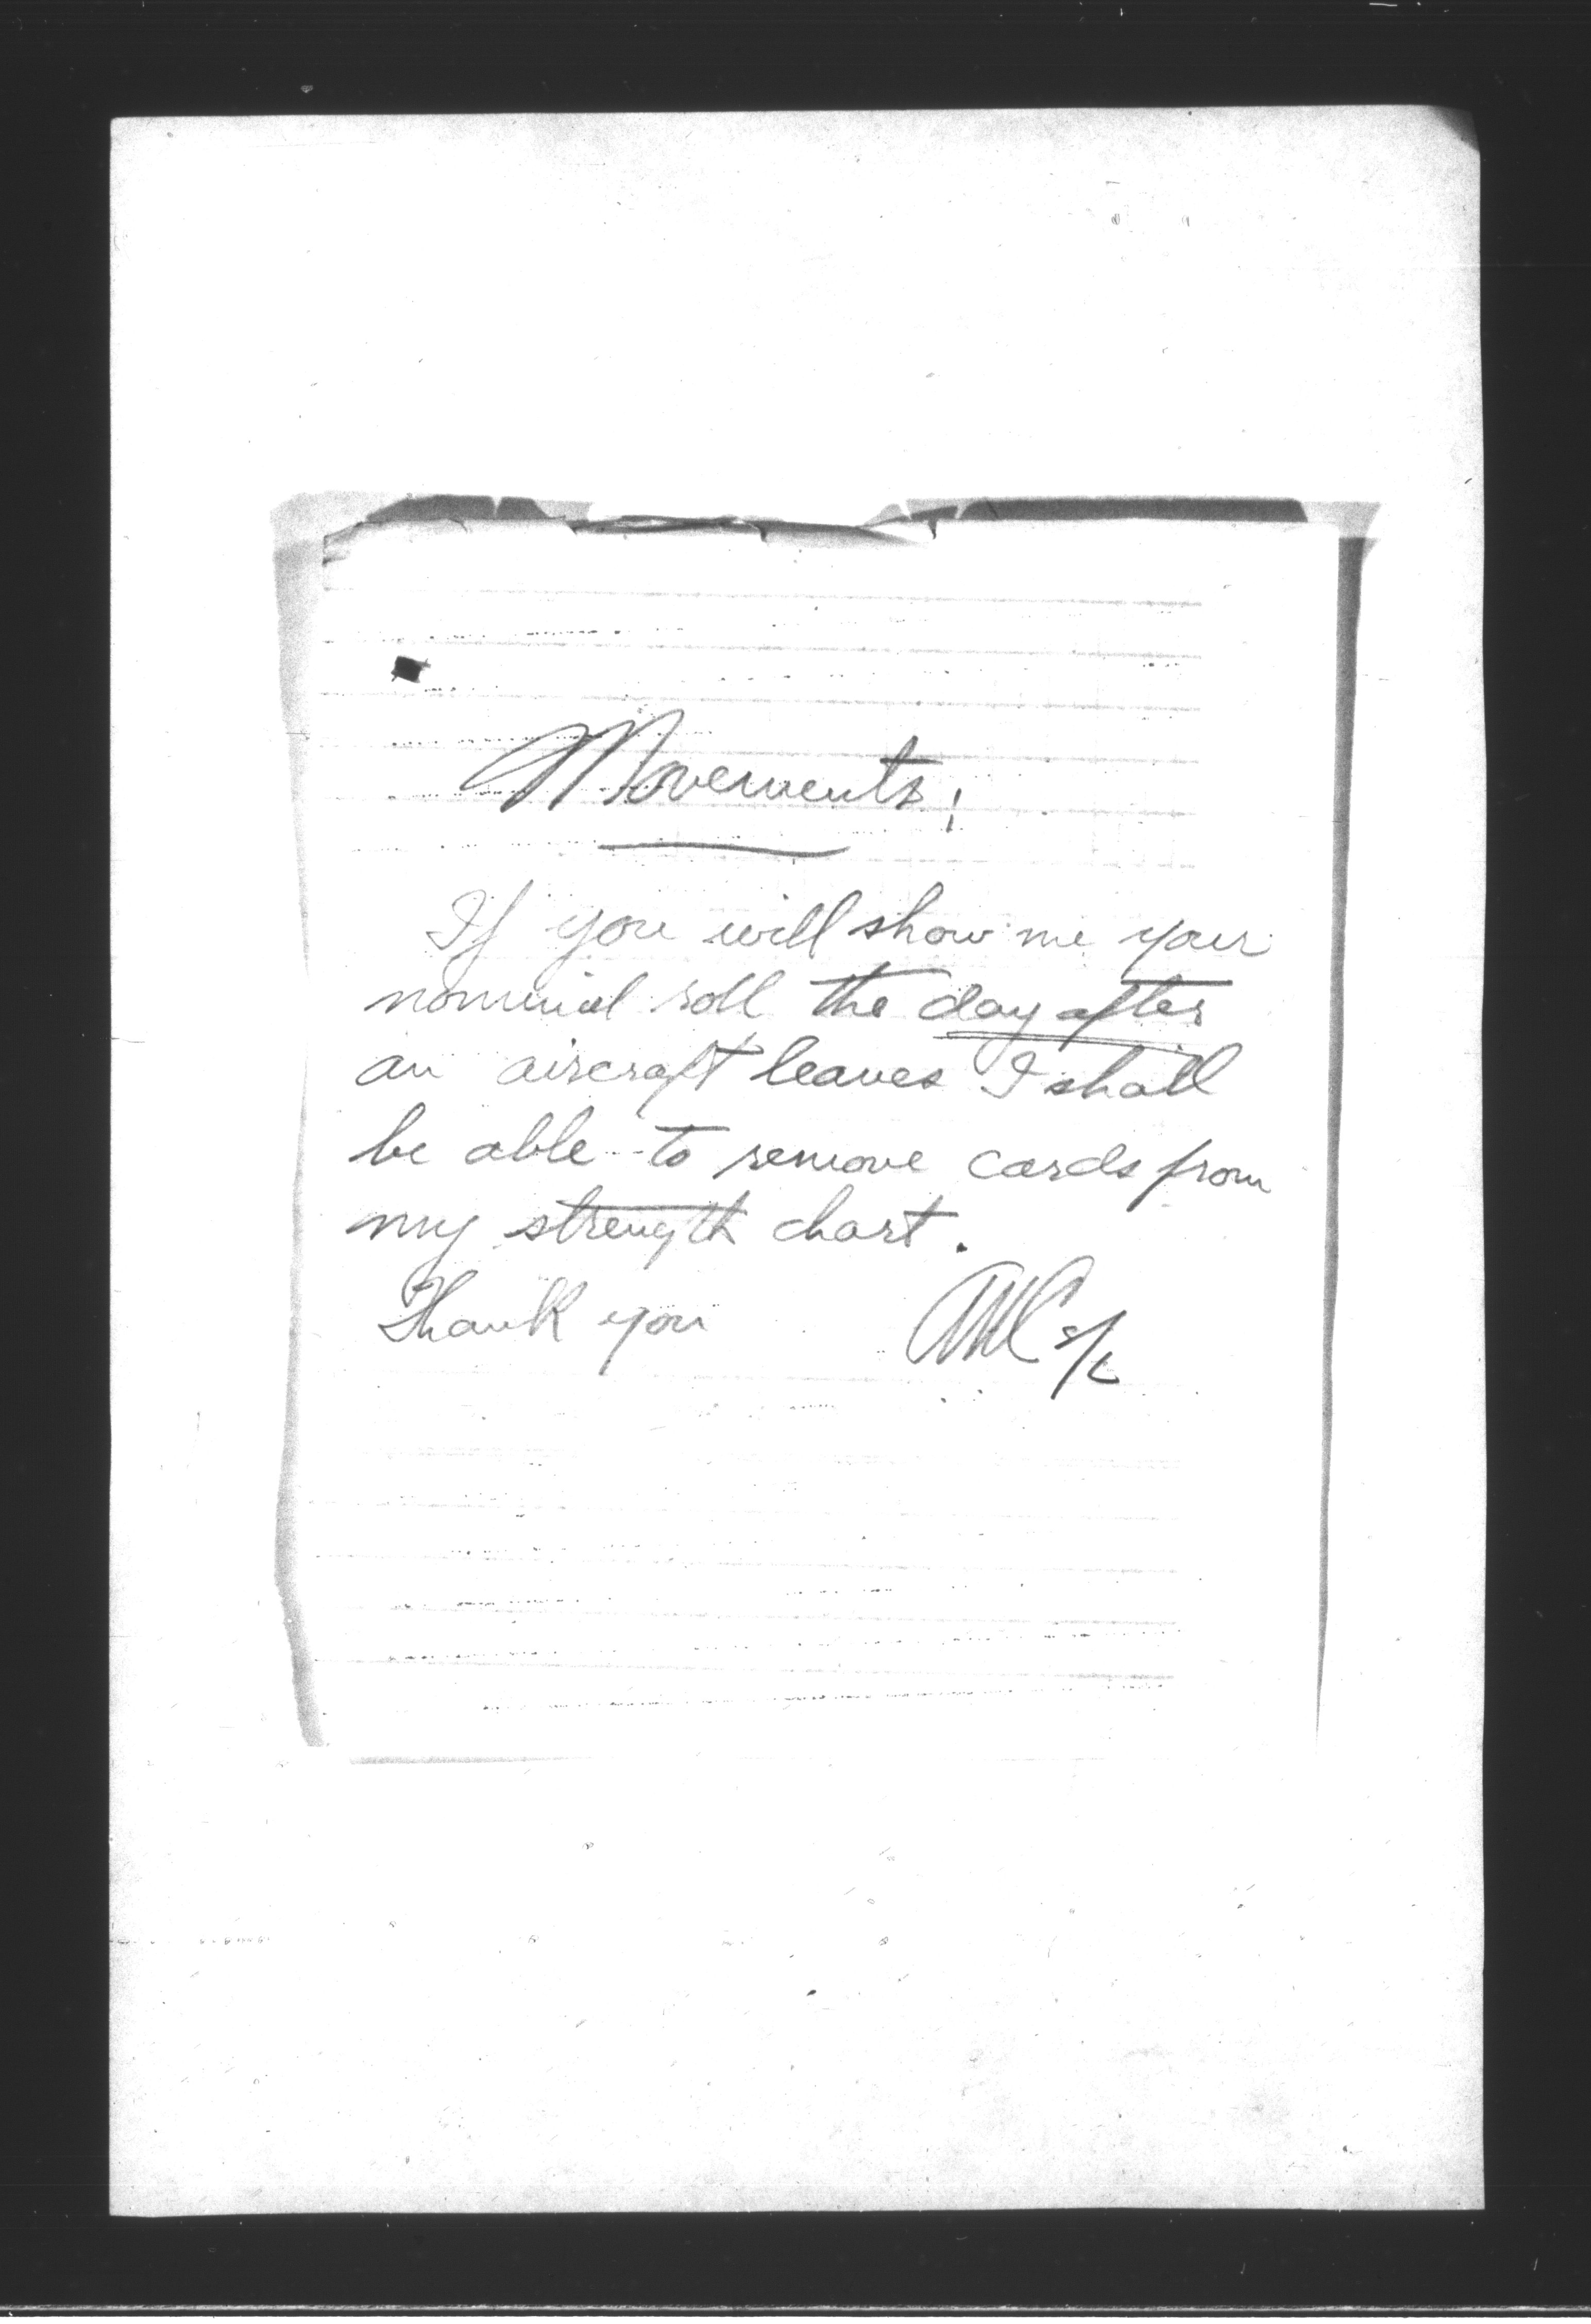 Movements;
If you will show me your
nominal roll the day after
an aircraft leaves I shall
be able to remove cards from
my strength chart.
Thank you